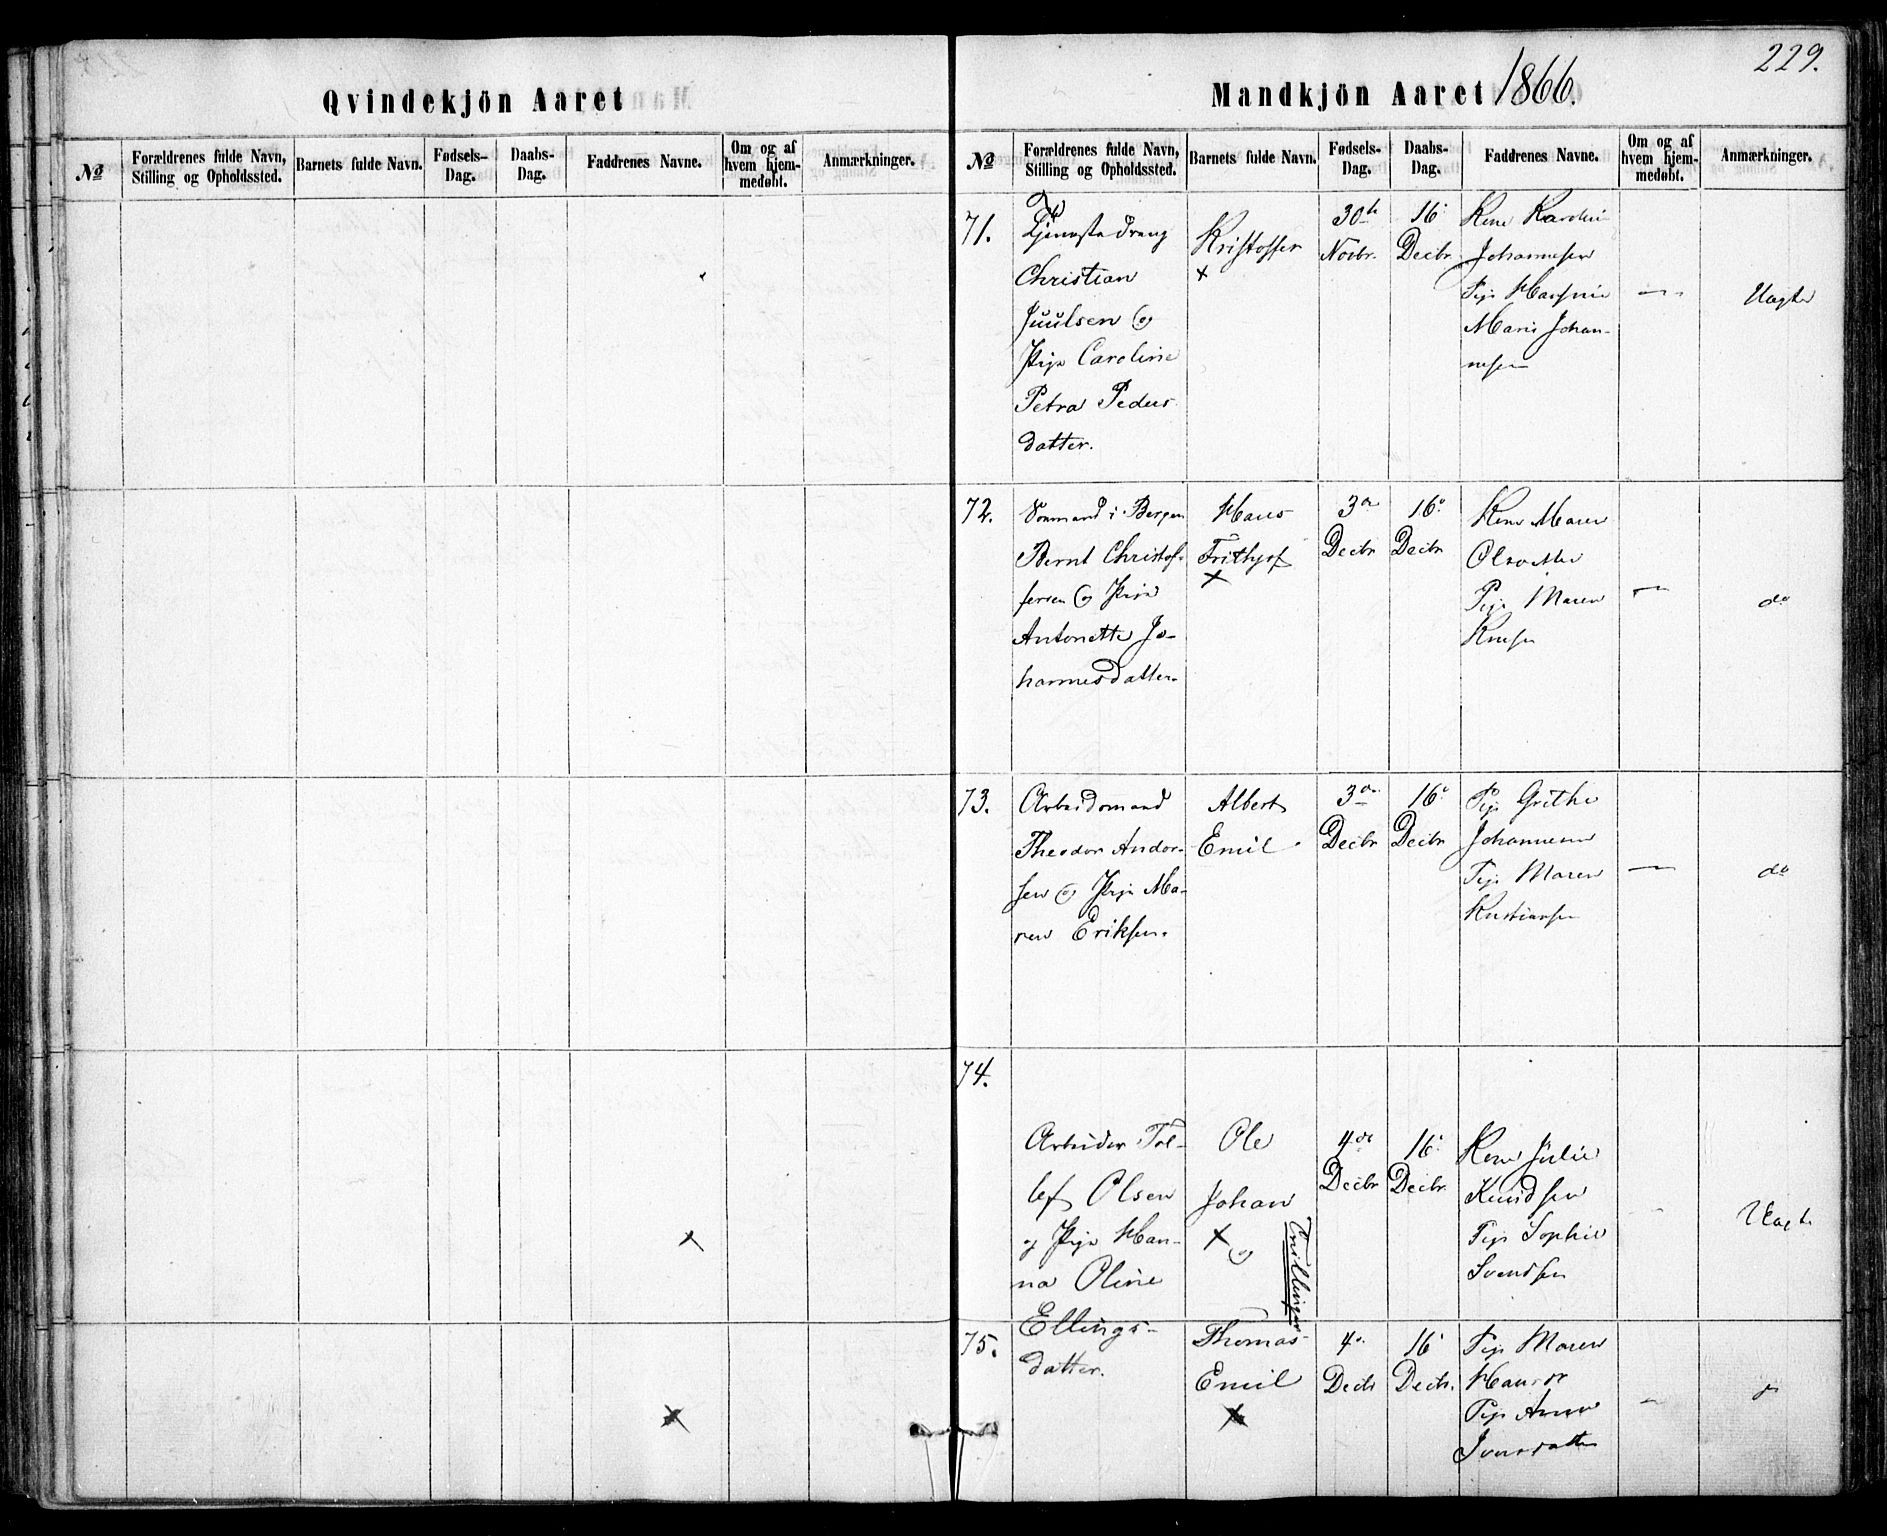 229.
Qvindekjön Aaret
Mandkjön Aaret 1866.
No
Forældrenes fulde Navn,
Stilling og Opholdssted.
Barnets fulde Navn.
Fødsels-
Dag.
Daabs-
Dag.
Faddrenes Navne.
Om og af
hvem hjem-
medøbt.
Anmærkninger.
No
Forældrenes fulde Navn,
Stilling og Opholdssted.
Barnets fulde Navn.
Fødsels-
Dag.
Daabs-
Dag.
Faddrenes Navne.
Om og af
hvem hjem-
medøbt.
Anmærkninger.
71.
Tjenestedreng
Christian
Juulsen og
Pige Caroline
Petra Peders
datter.
Kristoffer
×
30te
Novbr.
16
Decbr.
Kone Karoline
Johannesen
Pige
Marie Johan-
nesen
—
Uægte
72.
i Bergen
Bernt Christof-
fersen og Pige
Antonette Jo-
hannesdatter.
Hans
Frithjof
×
3de
Decbr
16
Decbr
Kone Maren
Pige Maren
—
do
73.
Arbeidsmand
Theodor Ander-
sen og Pige Ma-
ren Eriksen.
Albert
Emil
3de
Decbr
16
Decbr
Pige Grethe
Johannesen
Pige Maren
Kristiansen
—
do
74.
Arbeider Tol-
lef Olsen
og Pige Han-
na Oline
Ellings-
datter.
Ole
Johan
× og
Tvillinger
4de
Decbr
16
Decbr
Kone Julie
Knudsen
Pige Sophie
Svendsen
—
Uægte
75.
Thomas
Emil
×
4
Decbr
16
Decbr.
Pige Maren
Pige Anne
Iversdatter
—
do